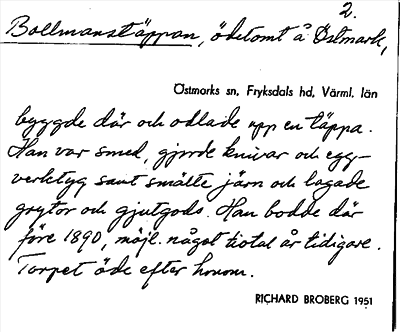 2.
Bollmanstäppan, ödetomt å Östmark,
Östmarks sn, Fryksdals hd, Värml. län
byggde där och odlade upp en täppa.
Han var smed, gjorde knivar och egg-
verktyg samt smälte järn och lagade
grytor och gjutgods. Han bodde där
före 1890, möjl. något tiotal år tidigare.
Torpet öde efter honom.
RICHARD BROBERG 1951